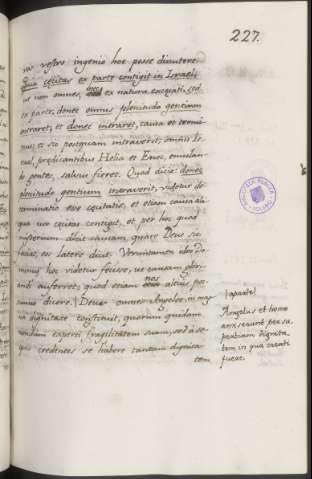 227.
vos vestro ingenio hoc posse discutere.
Quia cęcitas ex parte contigit in Israel:
ut non omnes, ex natura excęcati, sed
ex parte, donec omnis plenitudo gentium
intraret, et donec intraret, causa et termi
nus; et sic postquam intraverit, omnis Is
rael, prędicantibus Helia et Enoc, emulan
do gentes, salvus fieret. Quod dicit: donec
plenitudo gentium intraverit, videtur de
terminatio esse cęcitatis, et etiam causa ali
qua cur cęcitas contigit, et per hoc quod
causam, quare Deus sic
latere dicit. Veruntamen ideo Do
minus hoc videtur fecisse, ut causam glori
andi auferret; quod etiam nos altius pos
sumus dicere. Deus omnes Angelos in mag
na dignitate constituit, quorum quidam
experti fragilitatem suam, sed a se
ipsis credentes se habere tantam dignita
tem
(aparte)
Angelus et homo
per su
perbiam, dignita
tem in qua creati
fuere.